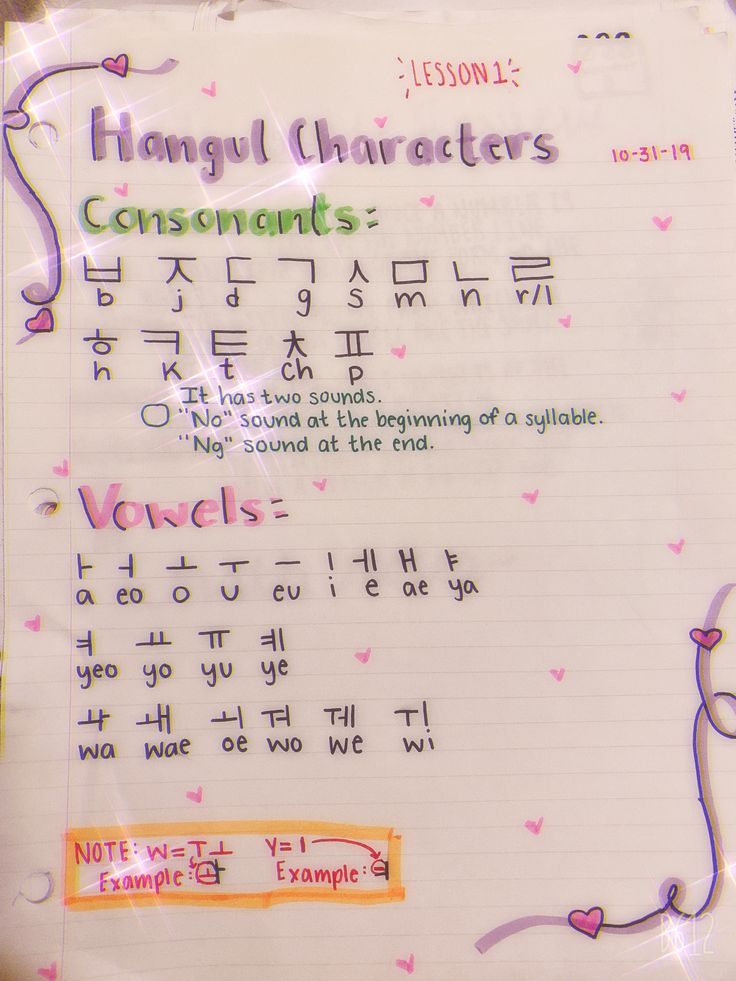 LESSON 1
Hangul Characters
10-31-19
Consonants:
ㅂ ㅈ ㄷ ㄱ ㅅ ㅁ ㄴ ㄹ
b j d g s m n r/l
ㅎ ㅋ ㅌ ㅊ ㅍ
h k t ch p
It has two sounds.
ㅇ "No" sound at the beginning of a syllable.
"Ng" sound at the end.
Vowels:
ㅏ ㅓ ㅗ ㅜ ㅡ ㅣ ㅔ ㅐ ㅑ
a eo o u eu i e ae ya
ㅕ ㅛ ㅠ ㅖ
yeo yo yu ye
ㅘ ㅙ ㅚ ㅝ ㅞ ㅟ
wa wae oe wo we wi
NOTE: W=ㅜㅗ Y=ㅣ
Example: Example:
B612